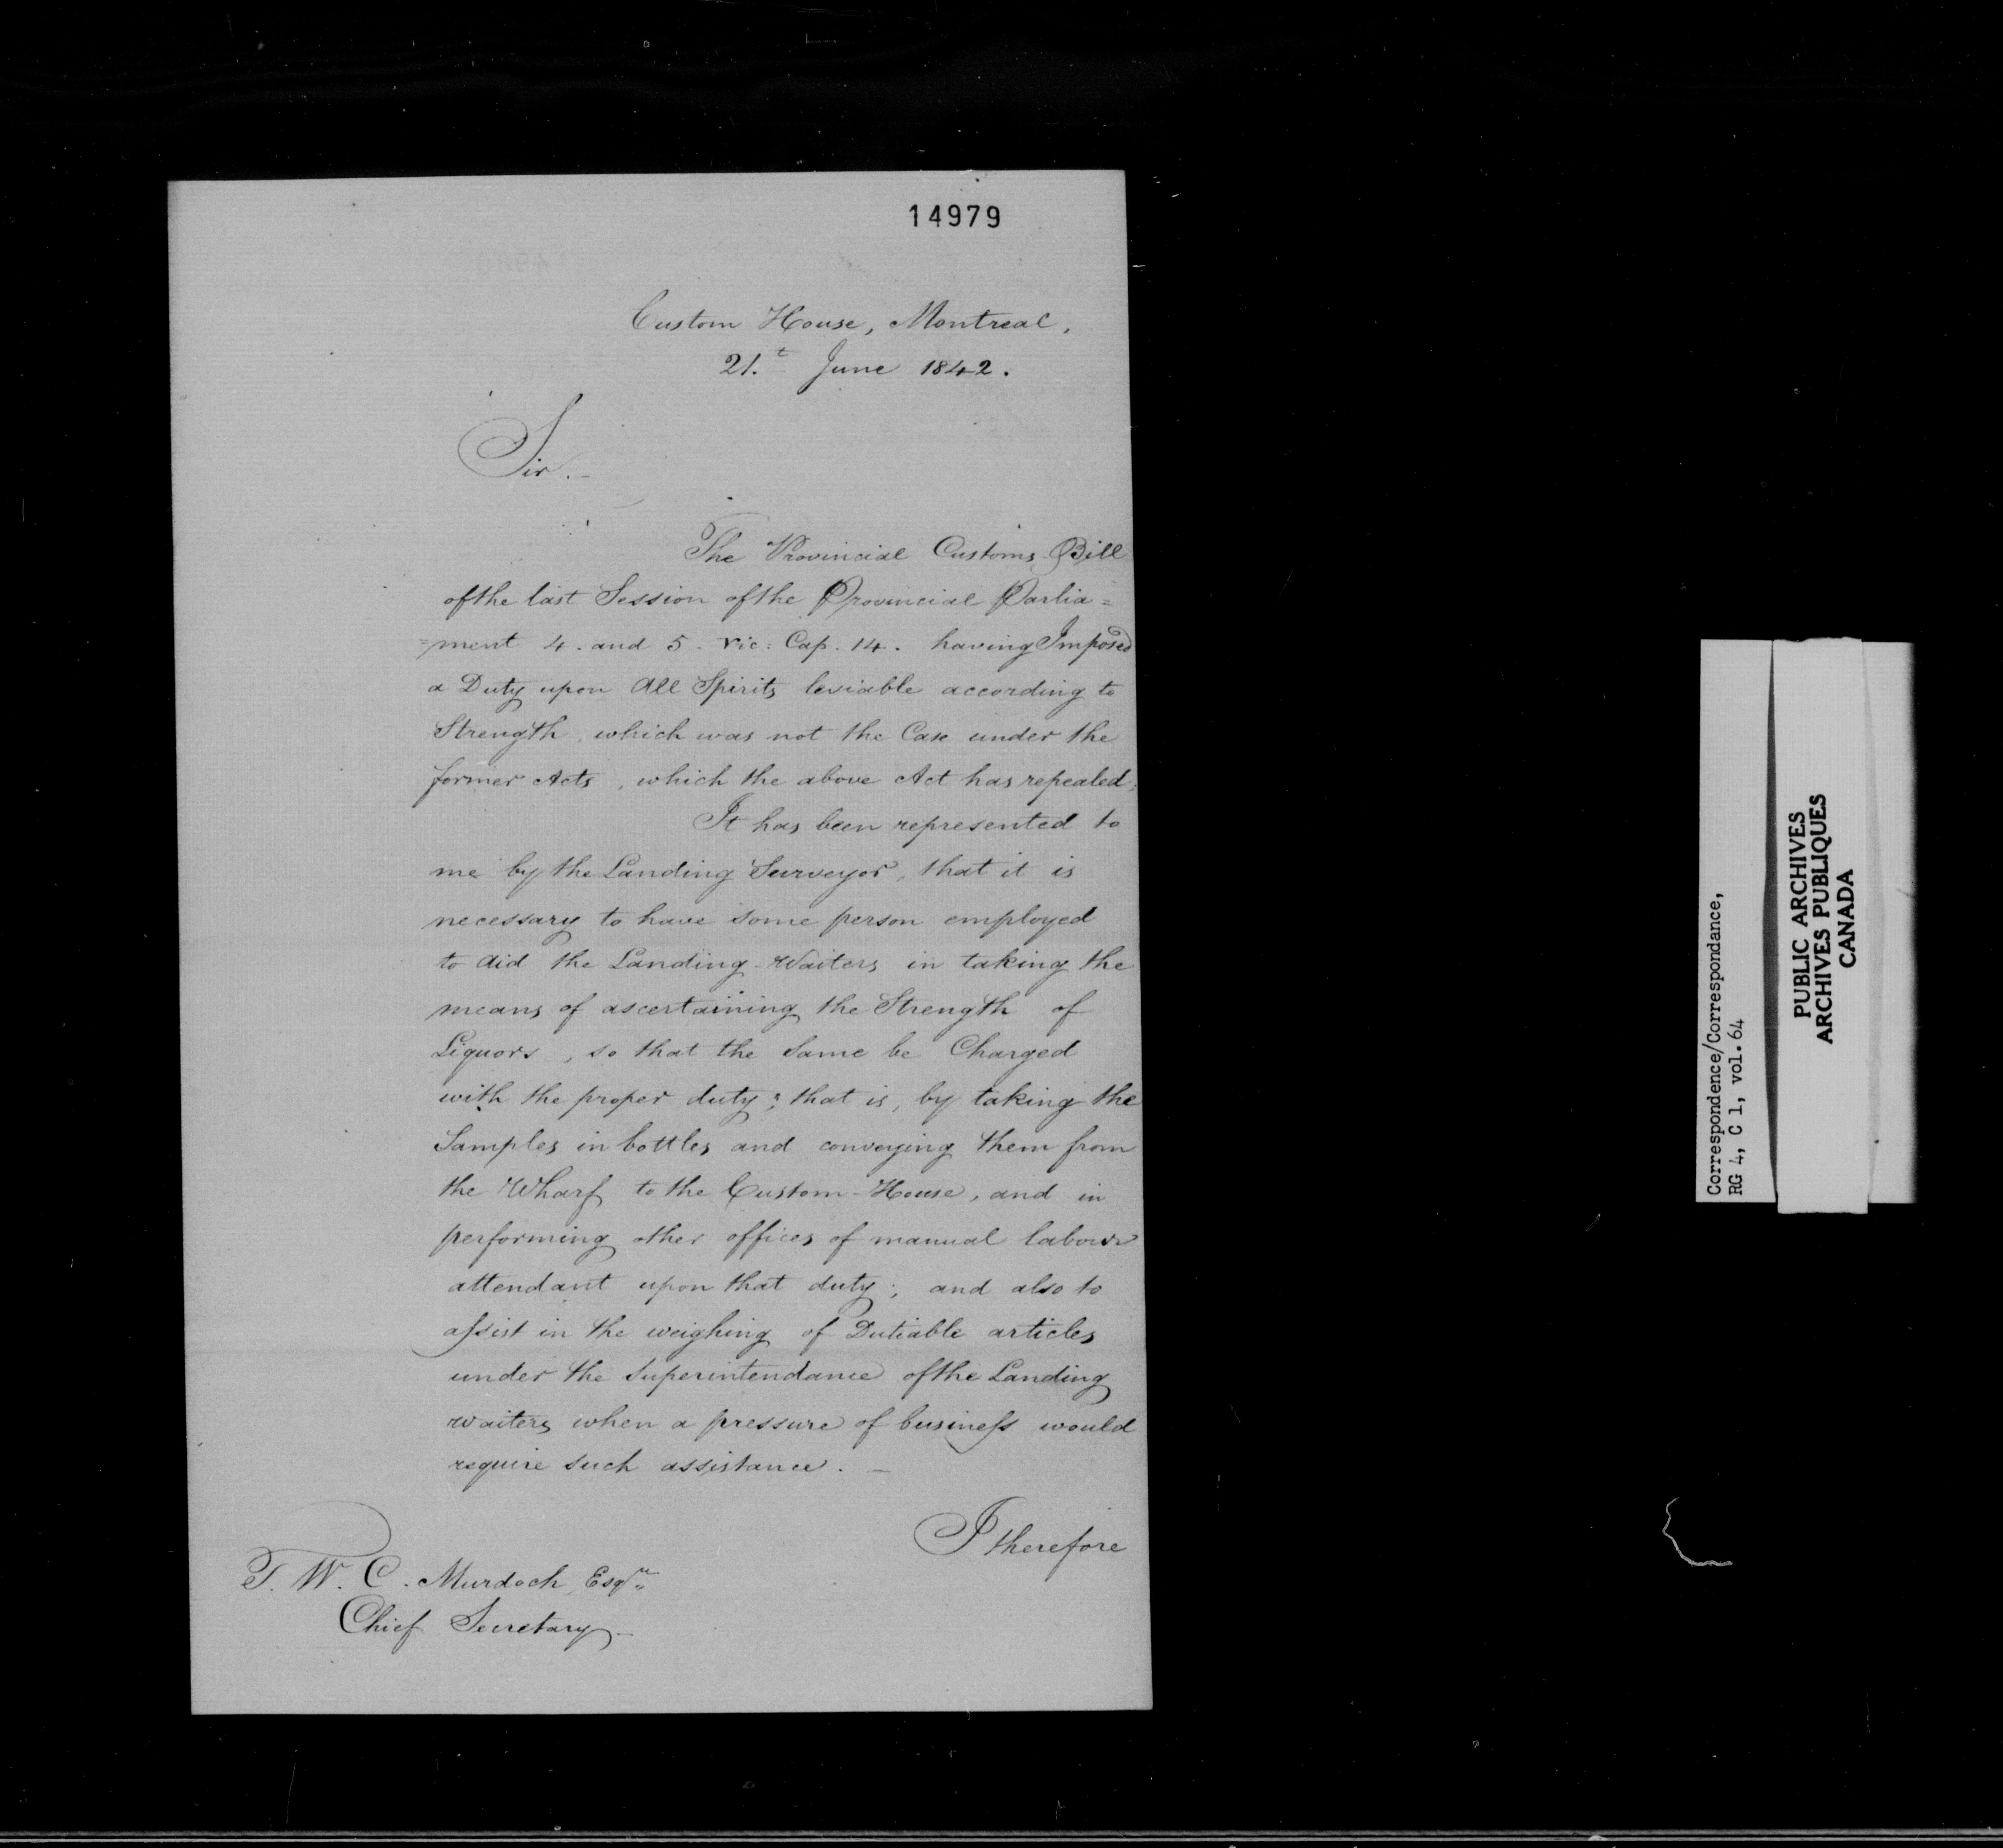 14979
Custom House, Montreal,
21.t June 1842.
Sir.-
The Provincial Customs Bill
of the last Session of the Provincial Parlia=
=ment 4. and 5. Vic: Cap. 14. having Imposed
a Duty upon All Spirits leviable according to
Strength, which was not the Case under the
former Acts, which the above Act has repealed;
It has been represented to
me by the Landing Surveyor, that it is
necessary to have some person employed
to aid the Landing-Waiters in taking the
means of ascertaining the Strength of
Liquors, so that the same be Charged
with the proper duty; that is, by taking the
Samples in bottles and conveying them from
the Wharf to the Custom-House, and in
performing other offices of manual labour
attendant upon that duty; and also to
assist in the weighing of Dutiable articles
under the superintendance of the Landing
waiters when a pressure of business would
require such assistance. -
I therefore
T. W. C. Murdoch, Esqre
Chief Secretary-
Correspondence/Correspondance,
RG 4, C 1, vol. 64
PUBLIC ARCHIVES
ARCHIVES PUBLIQUES
CANADA